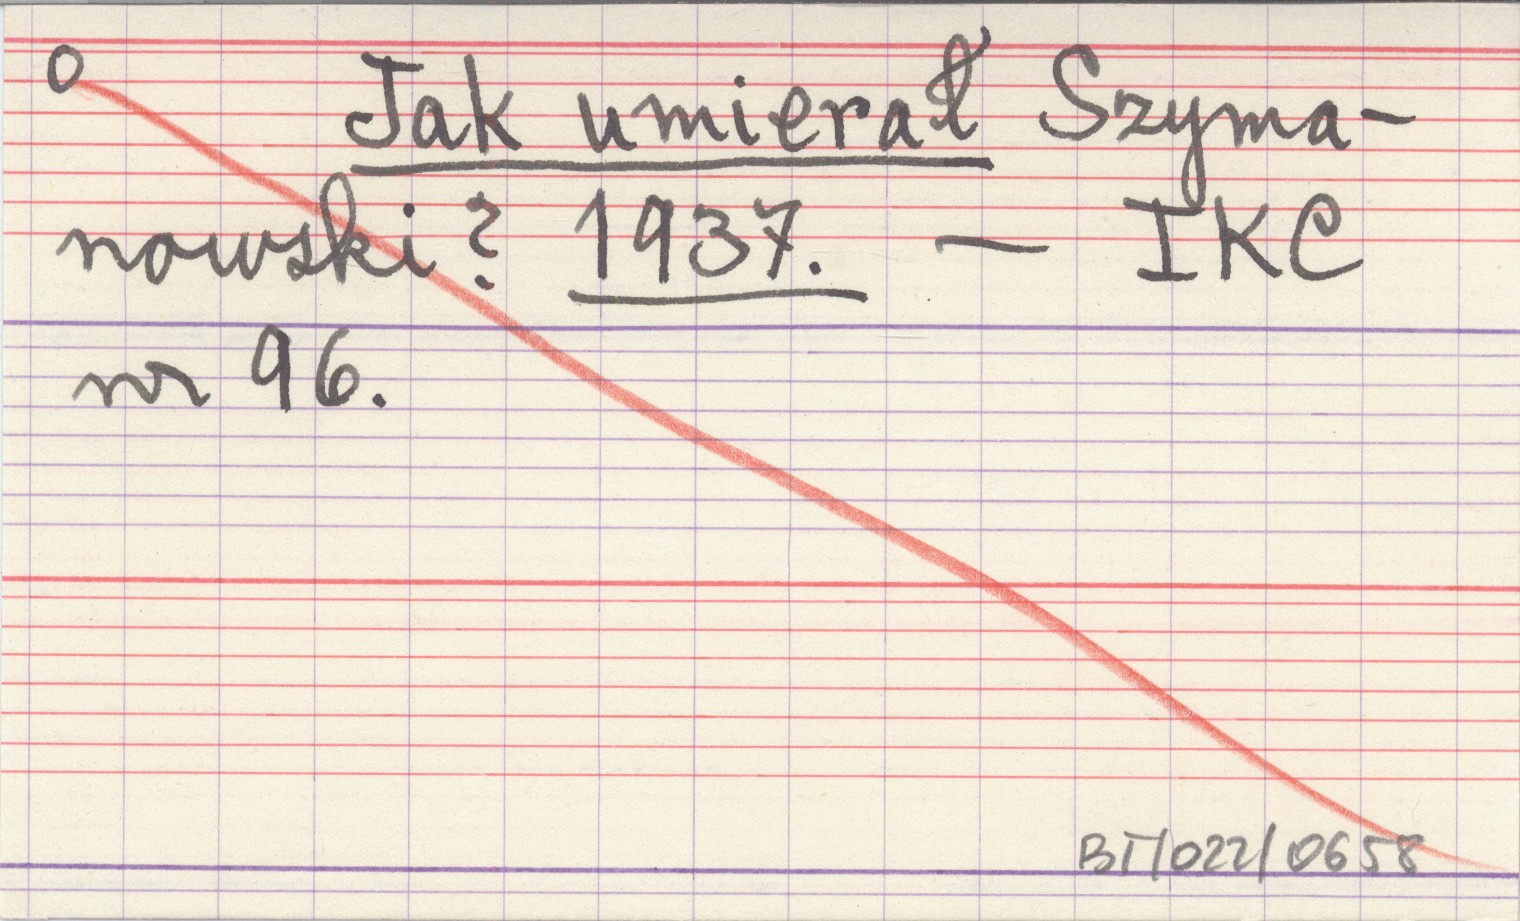 O Jak umierał Szyma-
nowski? 1937. — IKC
nr 96.
BI/022/0658